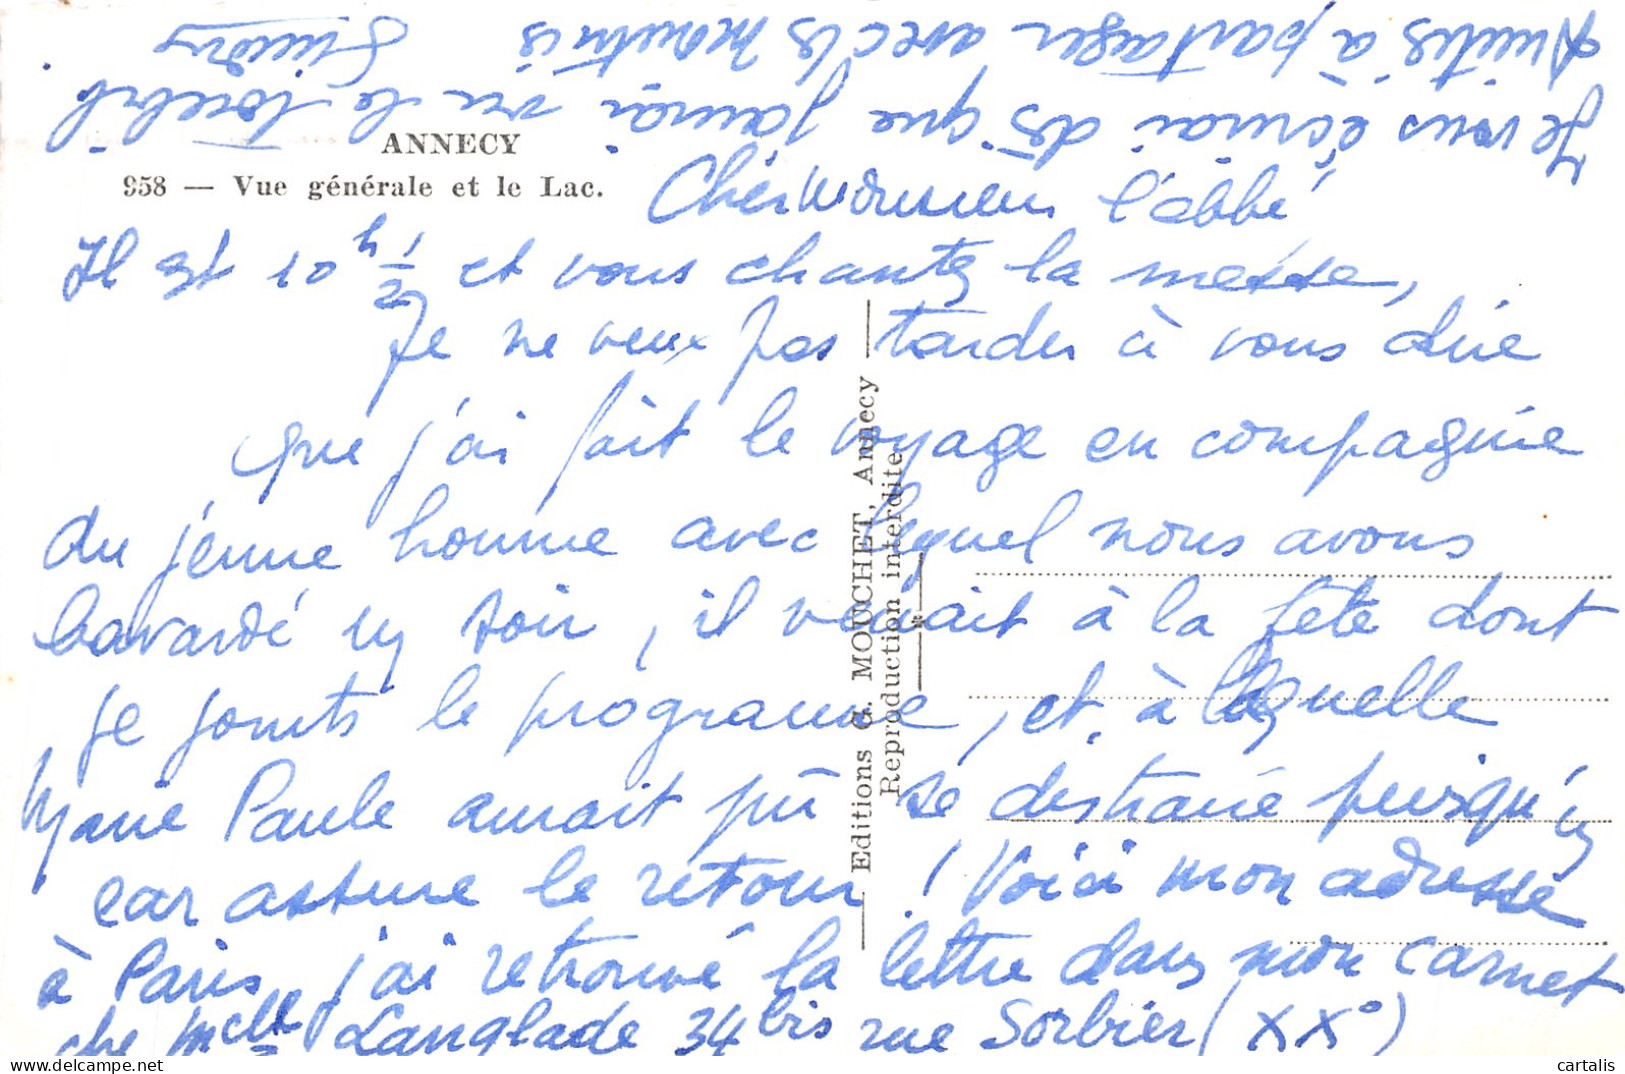 ANNECY
958 — Vue générale et le Lac.
Cher Monsieur l'abbé
Il est 10 h 1/2 et vous chantez la messe,
Je ne veux pas tarder à vous dire
que j'ai fait le voyage en compagnie
du jeune homme avec lequel nous avons
bavardé un soir, il venait à la fête dont
je joints le programme, et à laquelle
Marie Paule aurait pû se distraire puisqu'un
car assure le retour ! Voici mon adresse
à Paris j'ai retrouvé la lettre dans mon carnet
che Melle Langlade 34 bis rue Sorbier (XX°)
Je vous écrirai dès que j'aurai vu le
Amitiés à partager avec les
Editions G. MOUCHET, Annecy
Reproduction interdite
cartalis